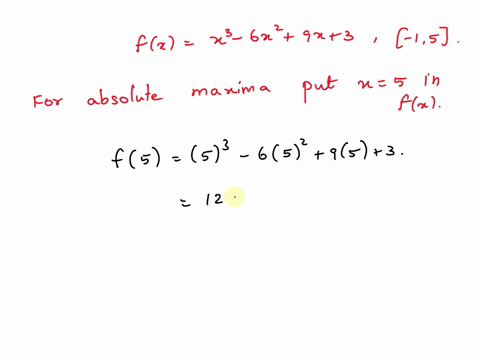 f(x) = x³ - 6x² + 9x + 3 , [-1, 5] .
For absolute maxima put x = 5 in
f(x).
f(5) = (5)³ - 6(5)² + 9(5) + 3 .
= 12